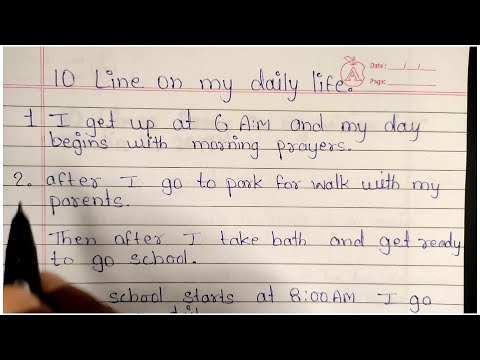 Date: / /
Page:
A
10 Line on my daily life.
1 I get up at 6 A:M and my day
begins with morning prayers.
2. after I go to park for walk with my
parents.
Then after I take bath and get ready
to go school.
school starts at 8:00AM I go